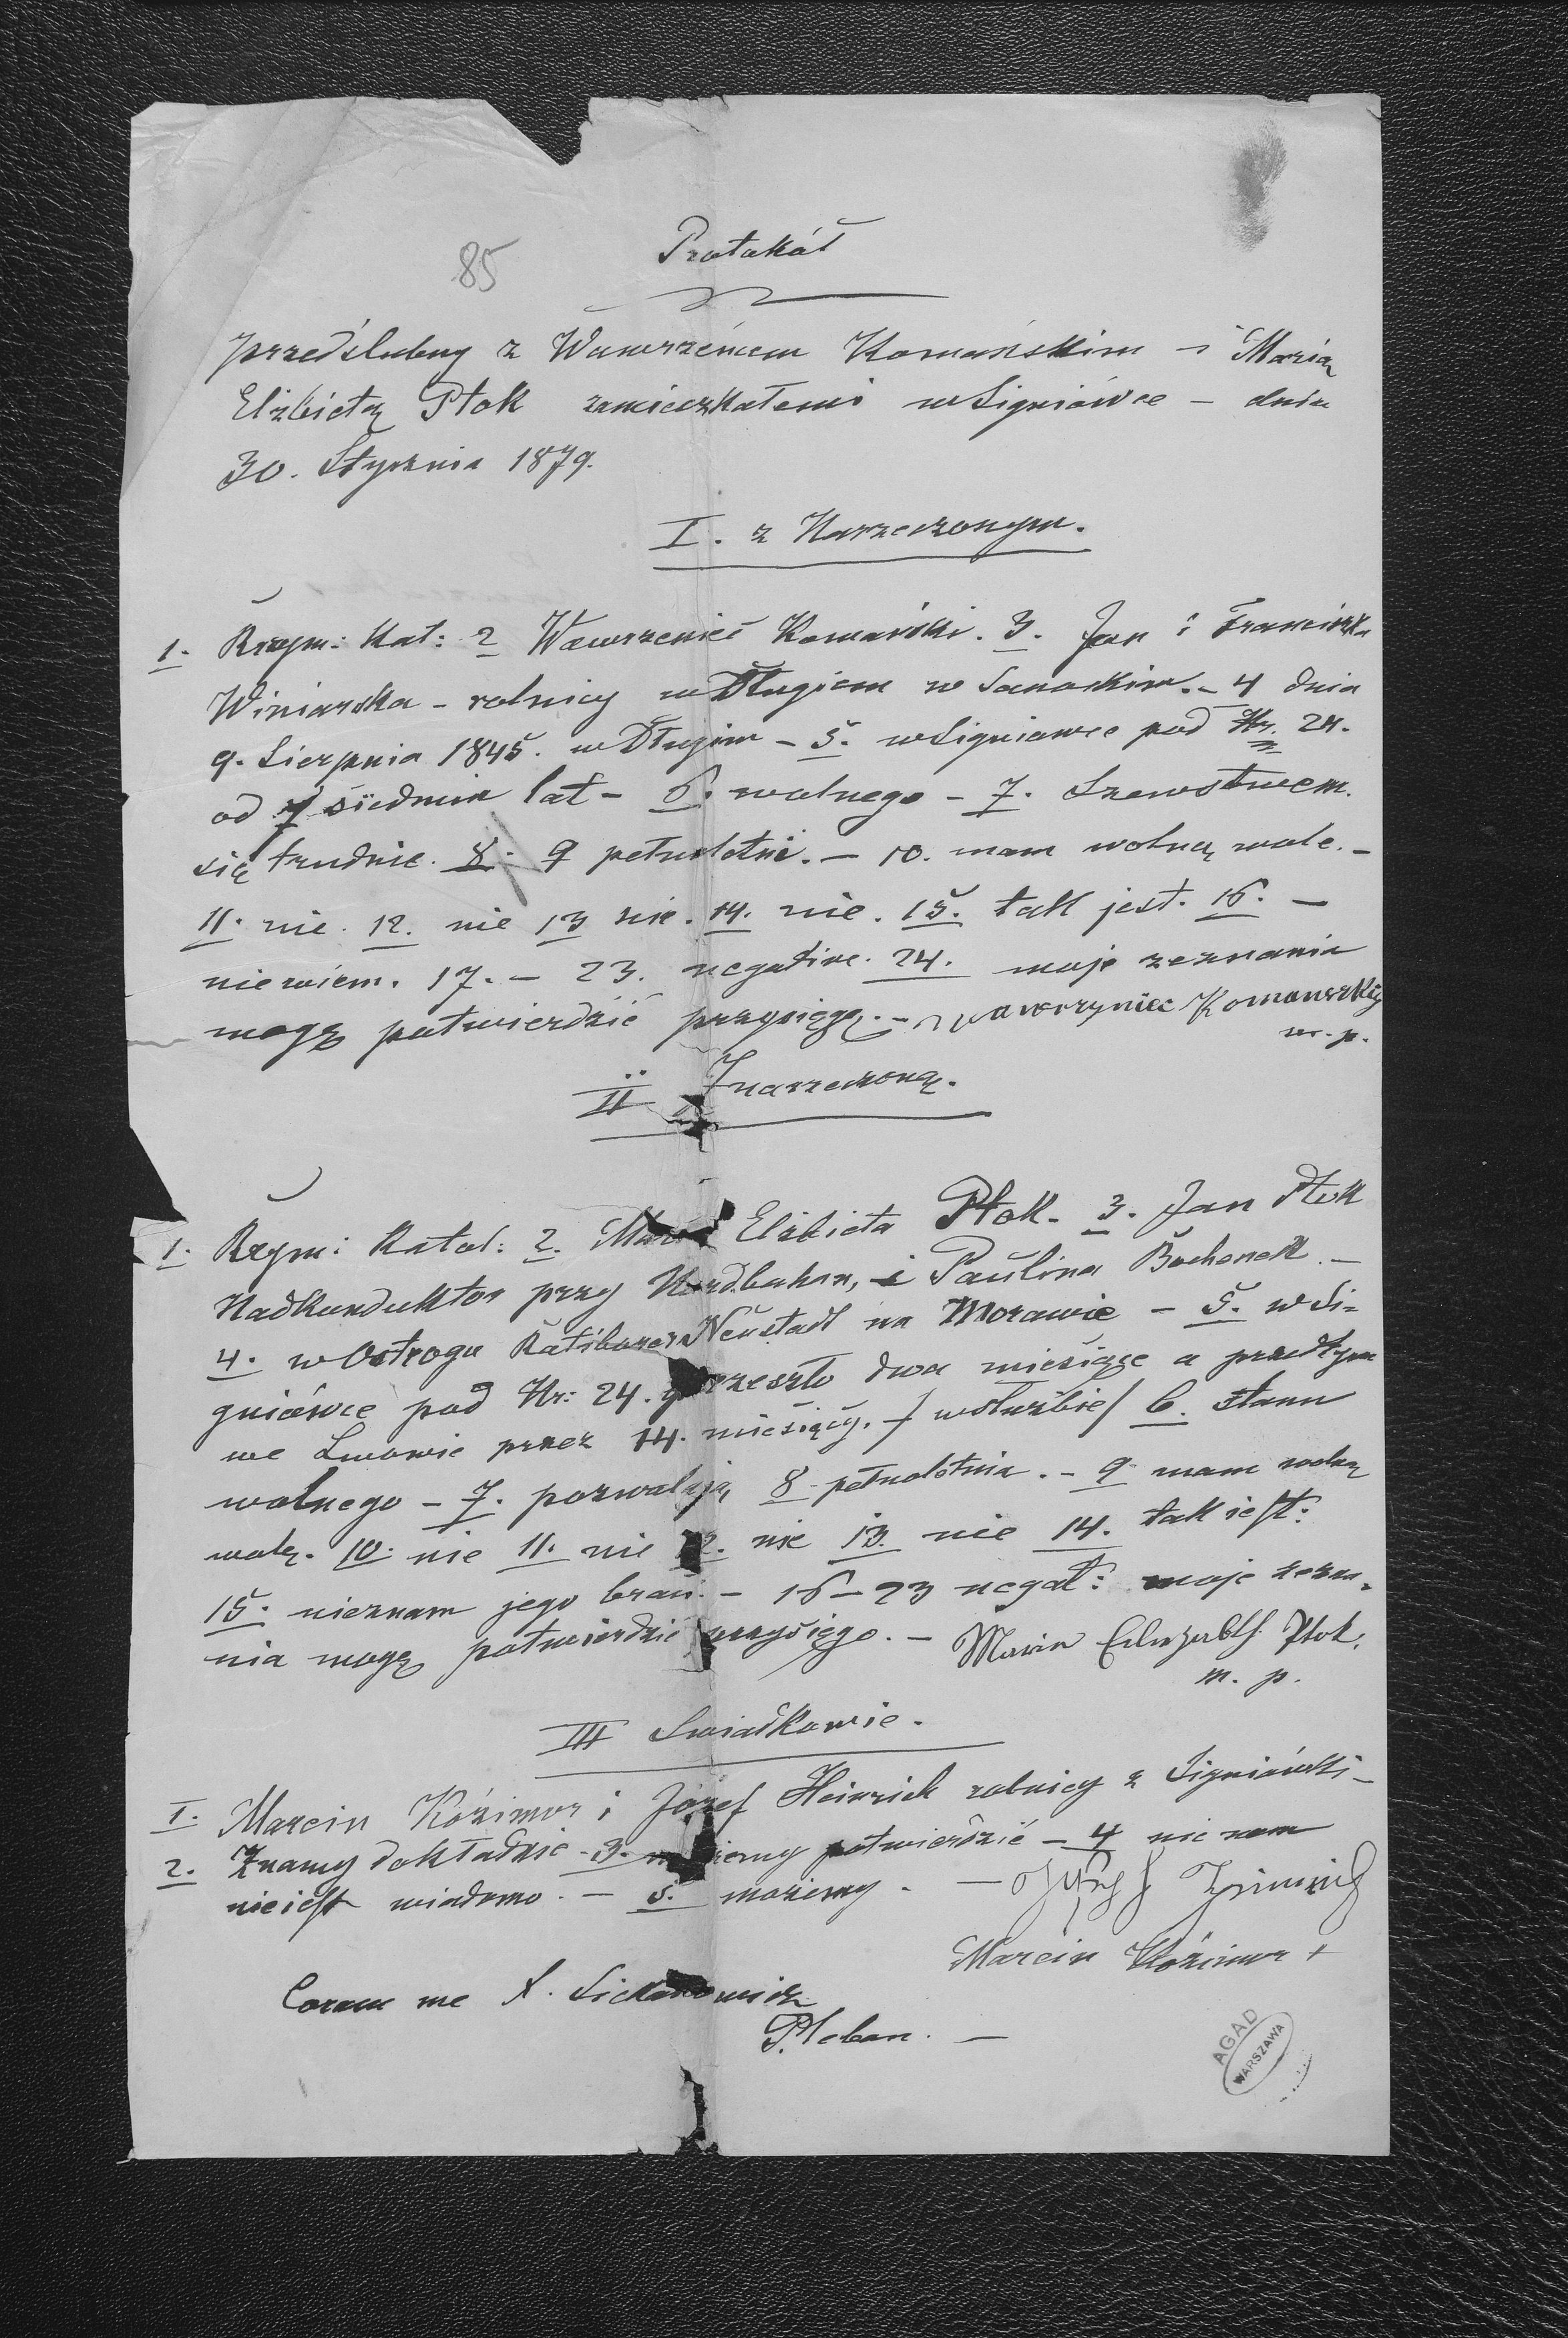 85
Protokół
przedślubny z Wawrzeńcem Komańskim - i Marią
Elżbietą Ptok zamieszkałemi w Signiówce - dnia
30. Stycznia 1879.
I. z Narzeczonym.
1. Rzym: Kat: 2 Wawrzeniec Komański. 3. Jan i Franciszka
Winiarska - rolnicy w Długiem w Sanockim. - 4 dnia
9. Sierpnia 1845. w Długim - 5. w Signiowce pod Nr. 24.
od 7 siedmiu lat - 6. wolnego - 7. Szewstwem
się trudnie. 8. 9 pełnoletni. - 10. mam wolną wole. -
11. nie. 12. nie 13 nie. 14. nie. 15. tak jest. 16. -
niewiem. 17. - 23. negative. 24. moje zeznania
mogę potwierdzić przysięgą. - Wawrzyniec Komanski
m. p.
II Z narzeczoną.
1. Rzym: Katol: 2. Maria Elżbieta Ptok. 3. Jan Ptok
Nadkonduktor przy Nordbahn, - i Paulina Bochenek. -
4. w Ostrogu Ratiborer Neustadt na Morawie - 5. w Si=
gniówce pod Nr: 24. przeszło dwa miesiące a przedtym
we Lwowie przez 14. miesięcy. / w służbie / 6. stanu
wolnego - 7. pozwalają, 8 pełnoletnia. - 9 mam wolną
wolę. 10. nie 11. nie 12. nie 13. nie 14. tak jest:
15. nieznam jego braci. - 16 - 23 negat: moje zezna=
nia mogę potwierdzić przysięgo. - Maria Ptok.
m. p.
III Swiadkowie.
1. Marcin Kózimor i Józef Heinrich rolnicy z Signiówki -
2. Znamy dokładnie - 3. możemy potwierdzić - 4 nic nam
nie jest wiadomo. - 5. możemy. -
Marcin Kózimor +
Coram me X.
Pleban. -
AGAD
WARSZAWA